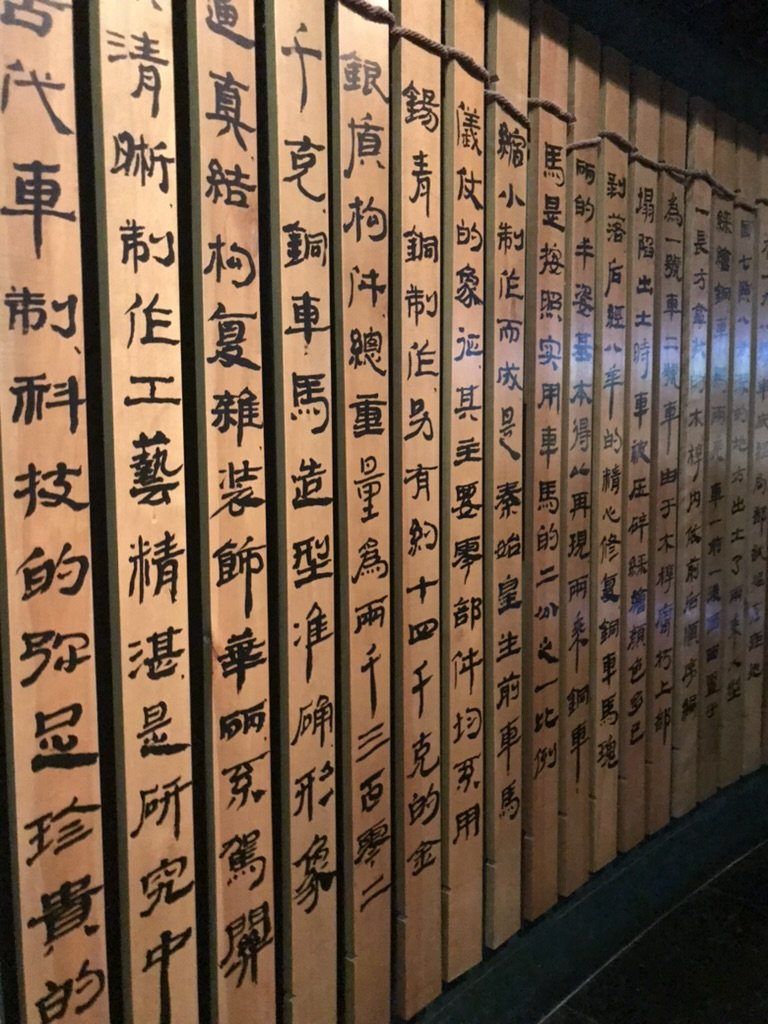 的地方出土了兩乘大型
綵繪銅車
一長方盒狀的木槨内依前后順序編
為一號車二號車由于木槨腐朽上部
塌陷出土時車被压碎綵繪顔色多已
剥落后經八年的精心修复銅車馬瑰
丽的丰姿基本得以再現兩乘銅車
馬是按照实用車馬的二分之一比例
縮小制作而成是秦始皇生前車馬
儀仗的象征其主要零部件均系用
錫青銅制作另有約十四千克的金
銀質构件總重量為兩千三百零二
千克銅車馬造型准确形象
逼真结构复雜装飾華丽系駕關
清晰制作工藝精湛是研究中
古代車制科技的弥足珍貴的